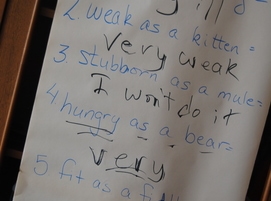 2. weak as a kitten =
Very weak
3. stubborn as a mule=
I won't do it
4 hungry as a bear=
very
5 fit as a